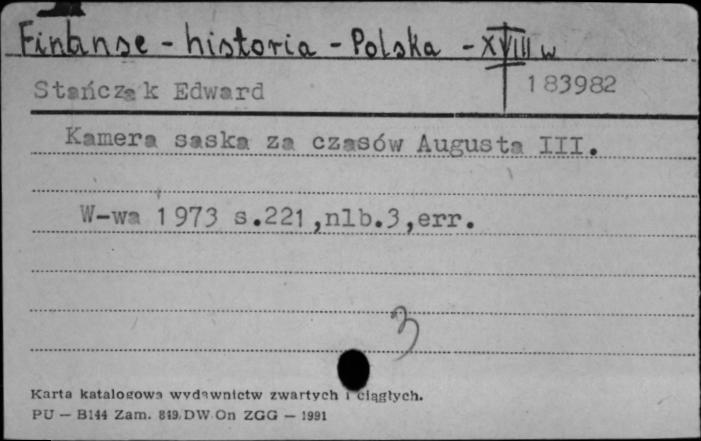 Finanse - historia - Polska - XVIII w
Stańczak Edward 183982
Kamera saska za czasów Augusta III.
W-wa 1973 s.221,nlb.3,err.
3
Karta katalogowa wydawnictw zwartych i ciągłych.
PU — B144 Zam. 849/DW/On ZGG — 1991